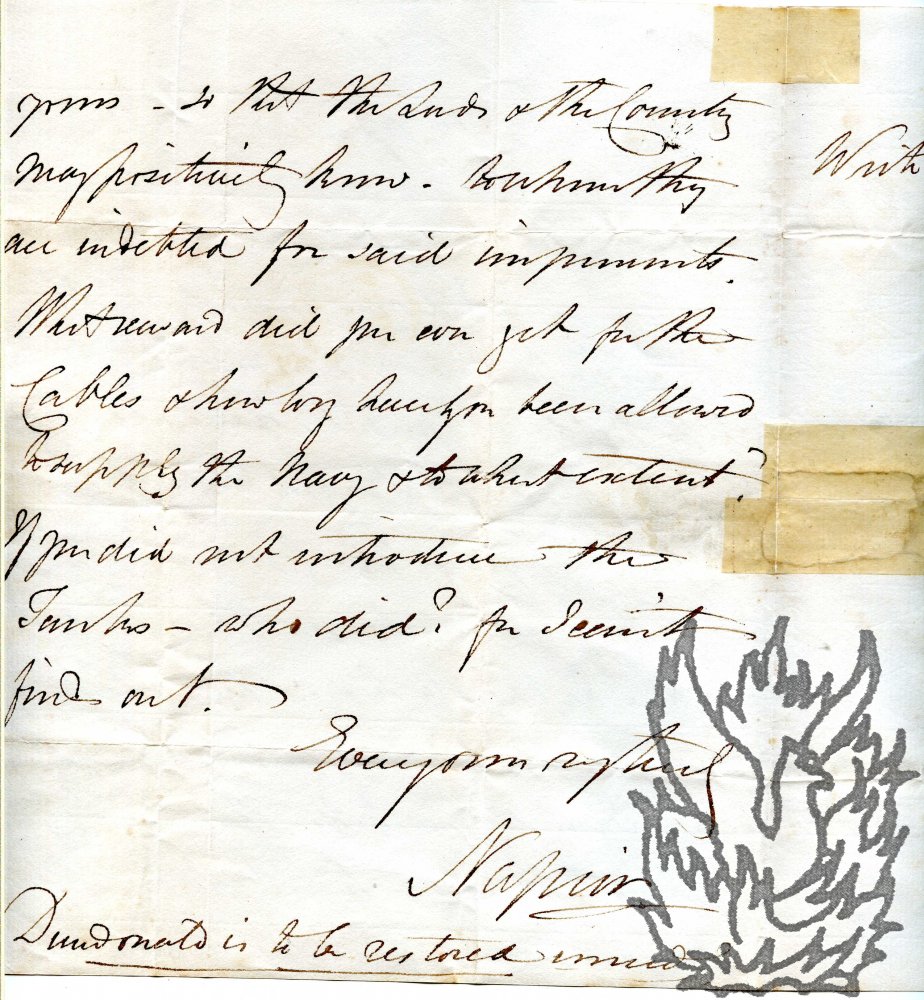 yours - so that the Lords & the Country
may positively know - to whom they
are indebted for said improvements.
What reward did you ever get for the
Cables & how long have you been allowed
to supply the Navy & to what extent?
If you did not introduce the
Tanks - who did? for I can't
find out.
Ever yours
Napier
Dundonald is to be restored
Write